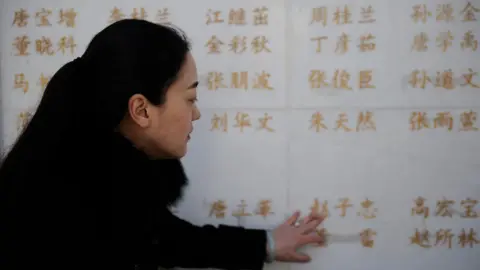 唐宝增 李桂兰 江继茁 周桂兰 孙源金
董晓科 金彩秋 丁彦茹 唐学禹
马 张朋波 张俊臣 孙道文
刘华文 朱天然 张雨萱
唐立革 赵子志 高宏宝
雷 赵所林